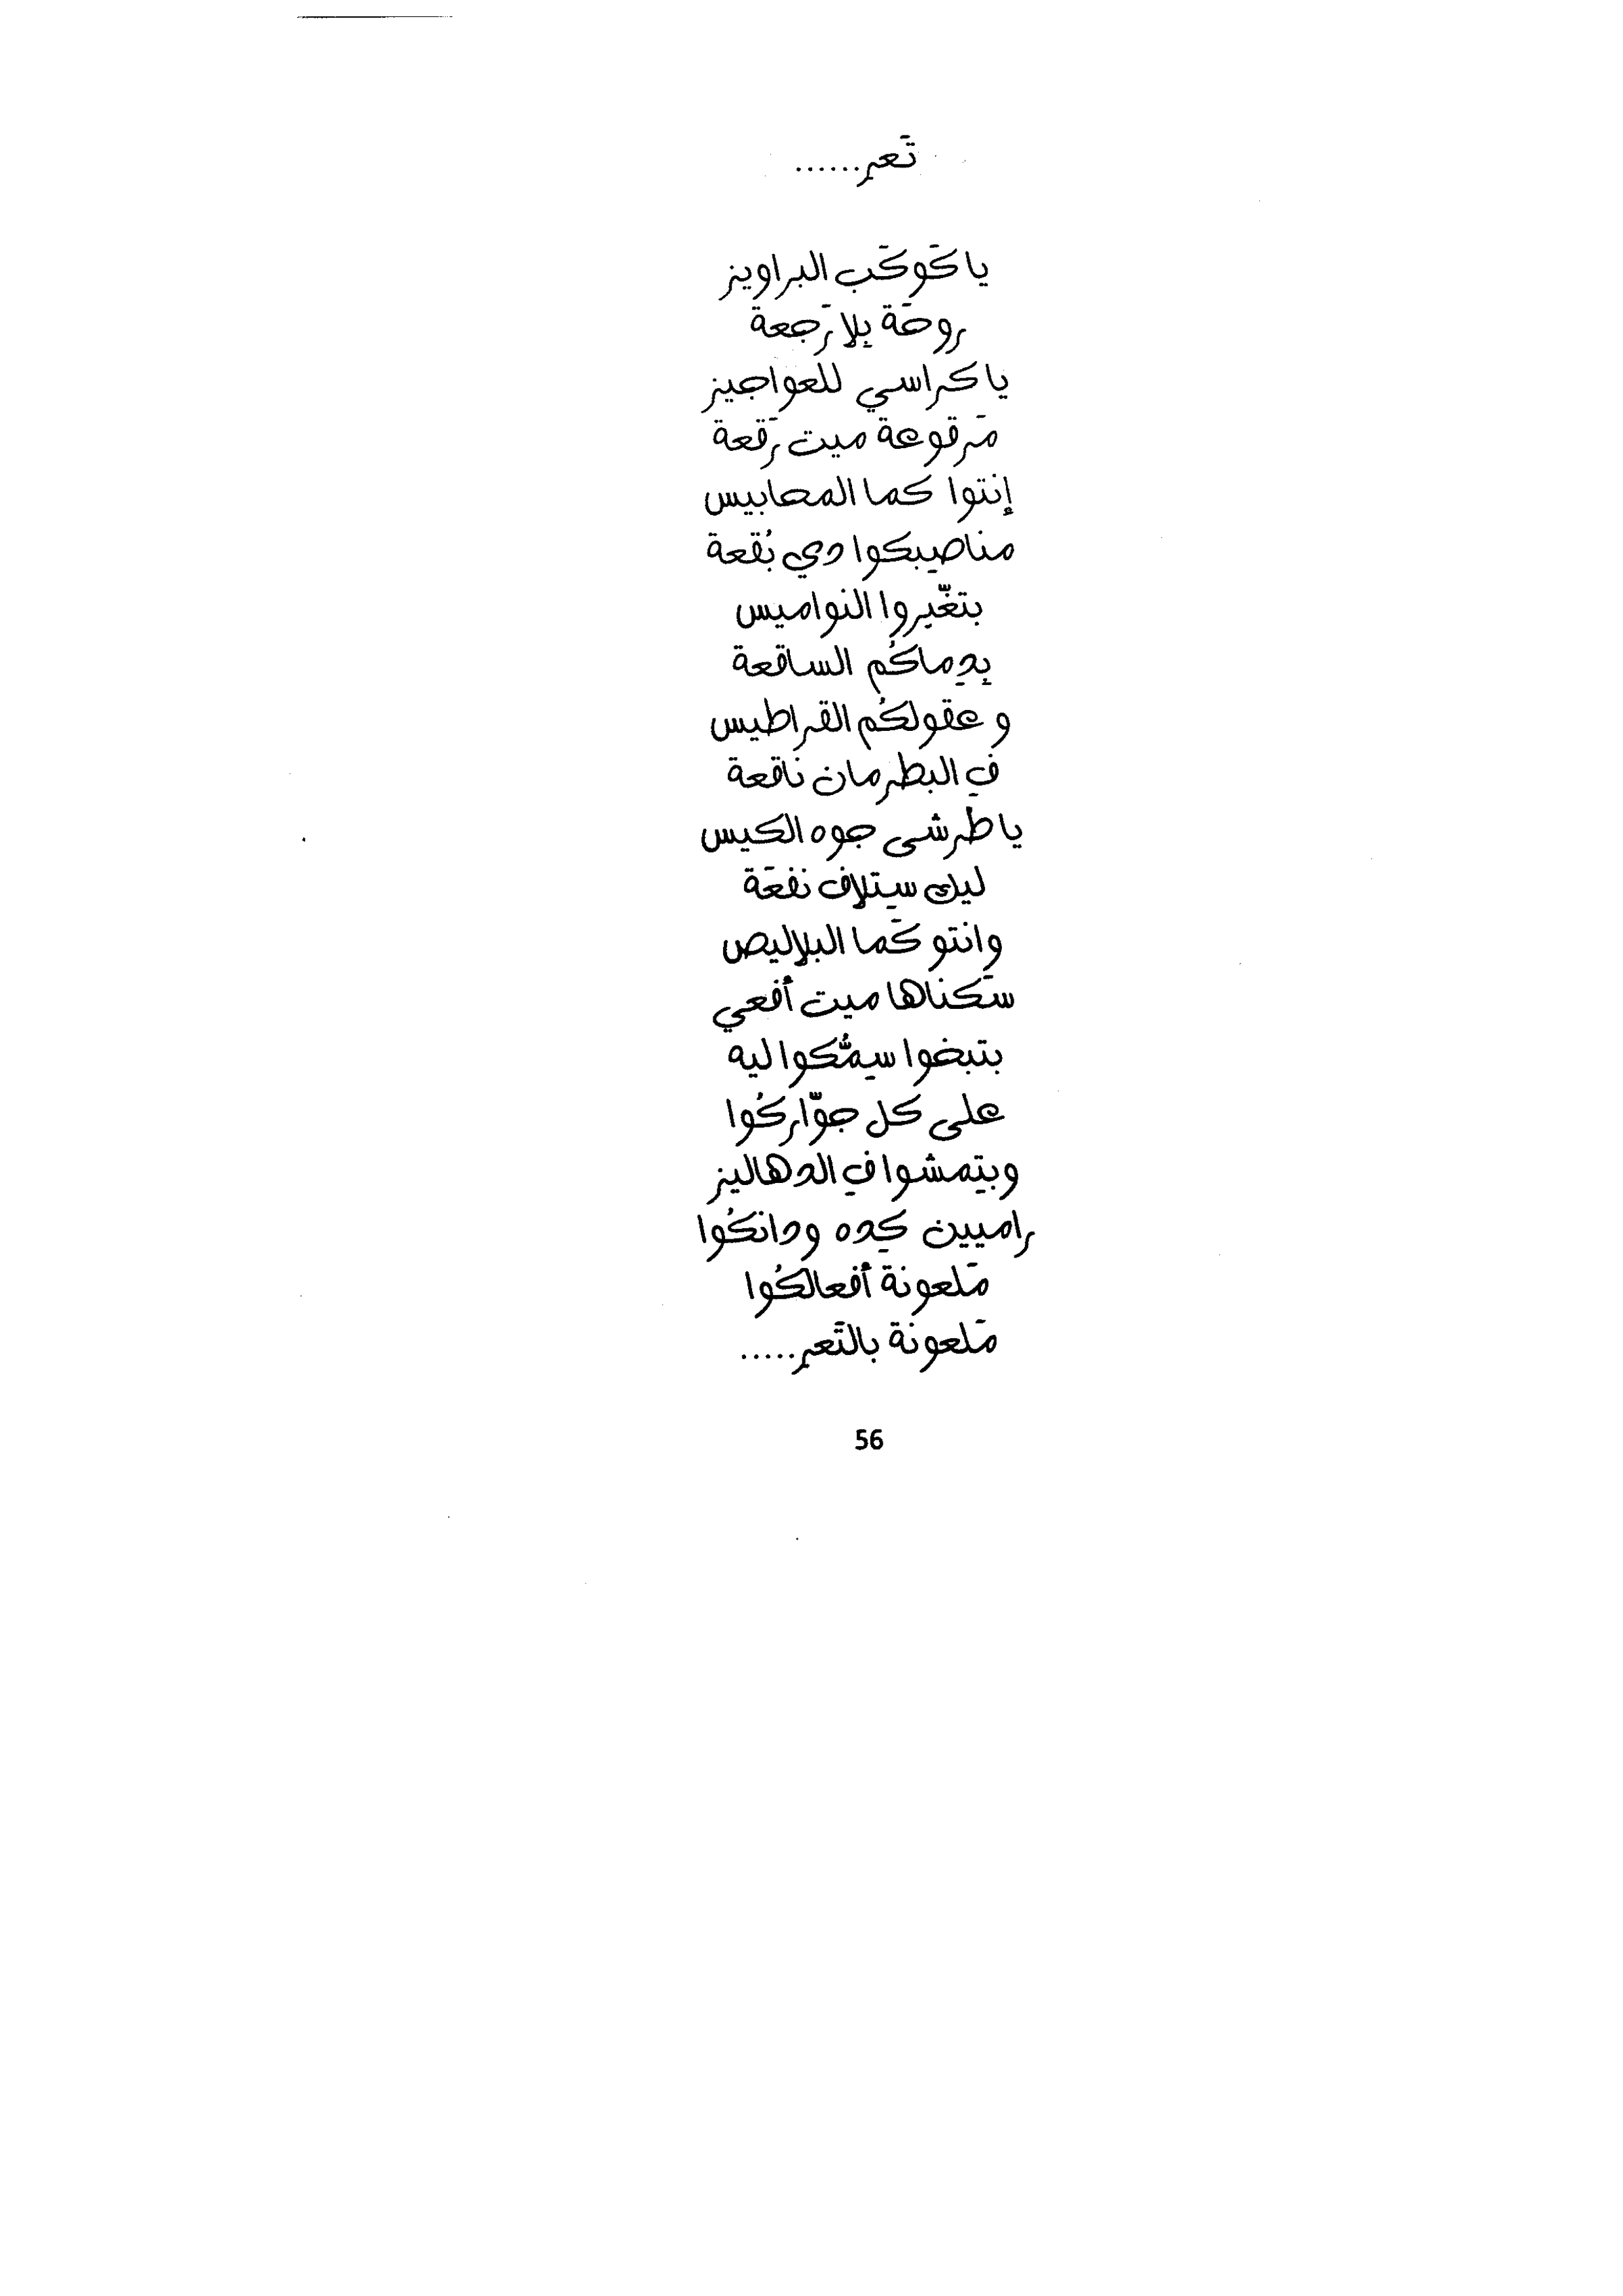 تَعر......
يا كَوكَب البراويز
روحَة بِلا رَجعة
يا كراسي للعواجيز
مَرقوعة ميت رَقعة
إنتوا كما المحابيس
مناصِبكوا دي بُقعة
بتغَّيروا النواميس
بِدِماكُم الساقعة
و عقولكُم القراطيس
فِ البطرمان ناقعة
يا طُرشى جوه الكيس
ليك سِتلاف نفعَة
وانتو كَما البلاليص
سَكناها ميت أفعي
بتبخوا سِمُّكوا ليه
على كل جوّاركُوا
وبِتمشوا فِ الدهاليز
راميين كِده ودانكُوا
مَلعونة أفعالكُوا
مَلعونة بالتَعر.....
56